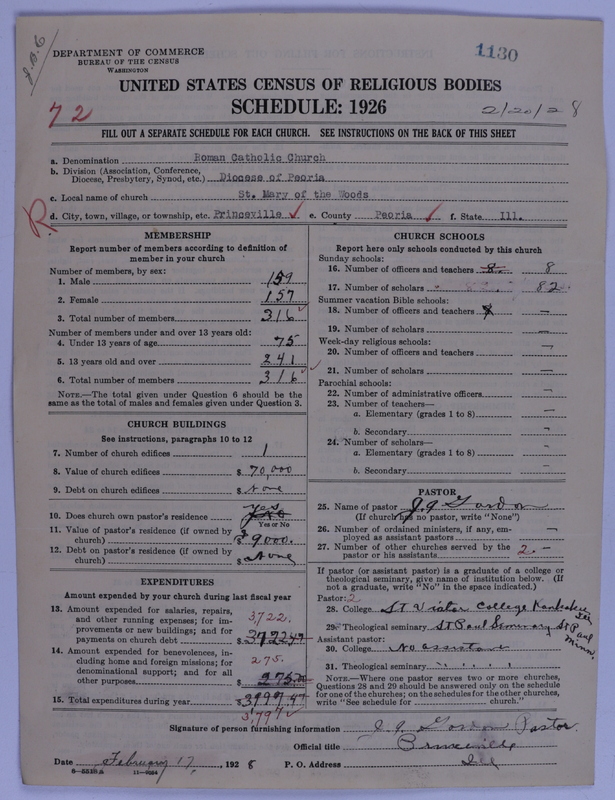 J.B.C
DEPARTMENT OF COMMERCE
BUREAU OF THE CENSUS
WASHINGTON
1130
UNITED STATES CENSUS OF RELIGIOUS BODIES
72
SCHEDULE: 1926
2/20/28
FILL OUT A SEPARATE SCHEDULE FOR EACH CHURCH. SEE INSTRUCTIONS ON THE BACK OF THIS SHEET
a. Denomination Roman Catholic Church
b. Division (Association, Conference, Diocese, Presbytery, Synod, etc.) Diocese of Peoria
c. Local name of church St. Mary of the Woods
R
d. City, town, village, or township, etc. Princeville ✓ e. County Peoria ✓ f. State Ill.
MEMBERSHIP
Report number of members according to definition of
member in your church
Number of members, by sex:
1. Male 159
2. Female 157
3. Total number of members 316 ✓
Number of members under and over 13 years old:
4. Under 13 years of age 75
5. 13 years old and over 241
6. Total number of members 316 ✓
NOTE.—The total given under Question 6 should be
same as the total of males and females given under Question 3.
CHURCH BUILDINGS
See instructions, paragraphs 10 to 12
7. Number of church edifices 1
8. Value of church edifices $ 70,000
9. Debt on church edifices $ None
10. Does church own pastor's residence yes
Yes or No
11. Value of pastor's residence (if owned by
church) $ 9000.
12. Debt on pastor's residence (if owned by
church) $ None
EXPENDITURES
Amount expended by your church during last fiscal year
13. Amount expended for salaries, repairs,
and other running expenses; for im-
provements or new buildings; and for
payments on church debt 3,722. $ 3722.47
14. Amount expended for benevolences, in-
cluding home and foreign missions; for
denominational support; and for all
other purposes 275. $ 275.
15. Total expenditures during year $ 3997.47
3,997
CHURCH SCHOOLS
Report here only schools conducted by this church
Sunday schools:
16. Number of officers and teachers 8. 8
17. Number of scholars 82. 82
Summer vacation Bible schools:
18. Number of officers and teachers —
19. Number of scholars —
Week-day religious schools:
20. Number of officers and teachers —
21. Number of scholars —
Parochial schools:
22. Number of administrative officers —
23. Number of teachers—
a. Elementary (grades 1 to 8) —
b. Secondary —
24. Number of scholars—
a. Elementary (grades 1 to 8) —
b. Secondary —
PASTOR
25. Name of pastor J. J. Gordon
(If church has no pastor, write "None")
26. Number of ordained ministers, if any, em-
ployed as assistant pastors —
27. Number of other churches served by the
pastor or his assistants 2. —
If pastor (or assistant pastor) is a graduate of a college or
theological seminary, give name of institution below. (If
not a graduate, write "No" in the space indicated.)
Pastor: 2
28. College St Viator College Kankakee Ill
29. Theological seminary St Paul Seminary St Paul Minn.
Assistant pastor:
30. College No assistant
31. Theological seminary " " " "
NOTE.—Where one pastor serves two or more churches,
Questions 28 and 29 should be answered only on the schedule
for one of the churches; on the schedules for the other churches,
write "See schedule for church."
Signature of person furnishing information J. J. Gordon Pastor.
Official title Princeville
Date February 17, 1928 P. O. Address Ill
8—5518a 11—9234